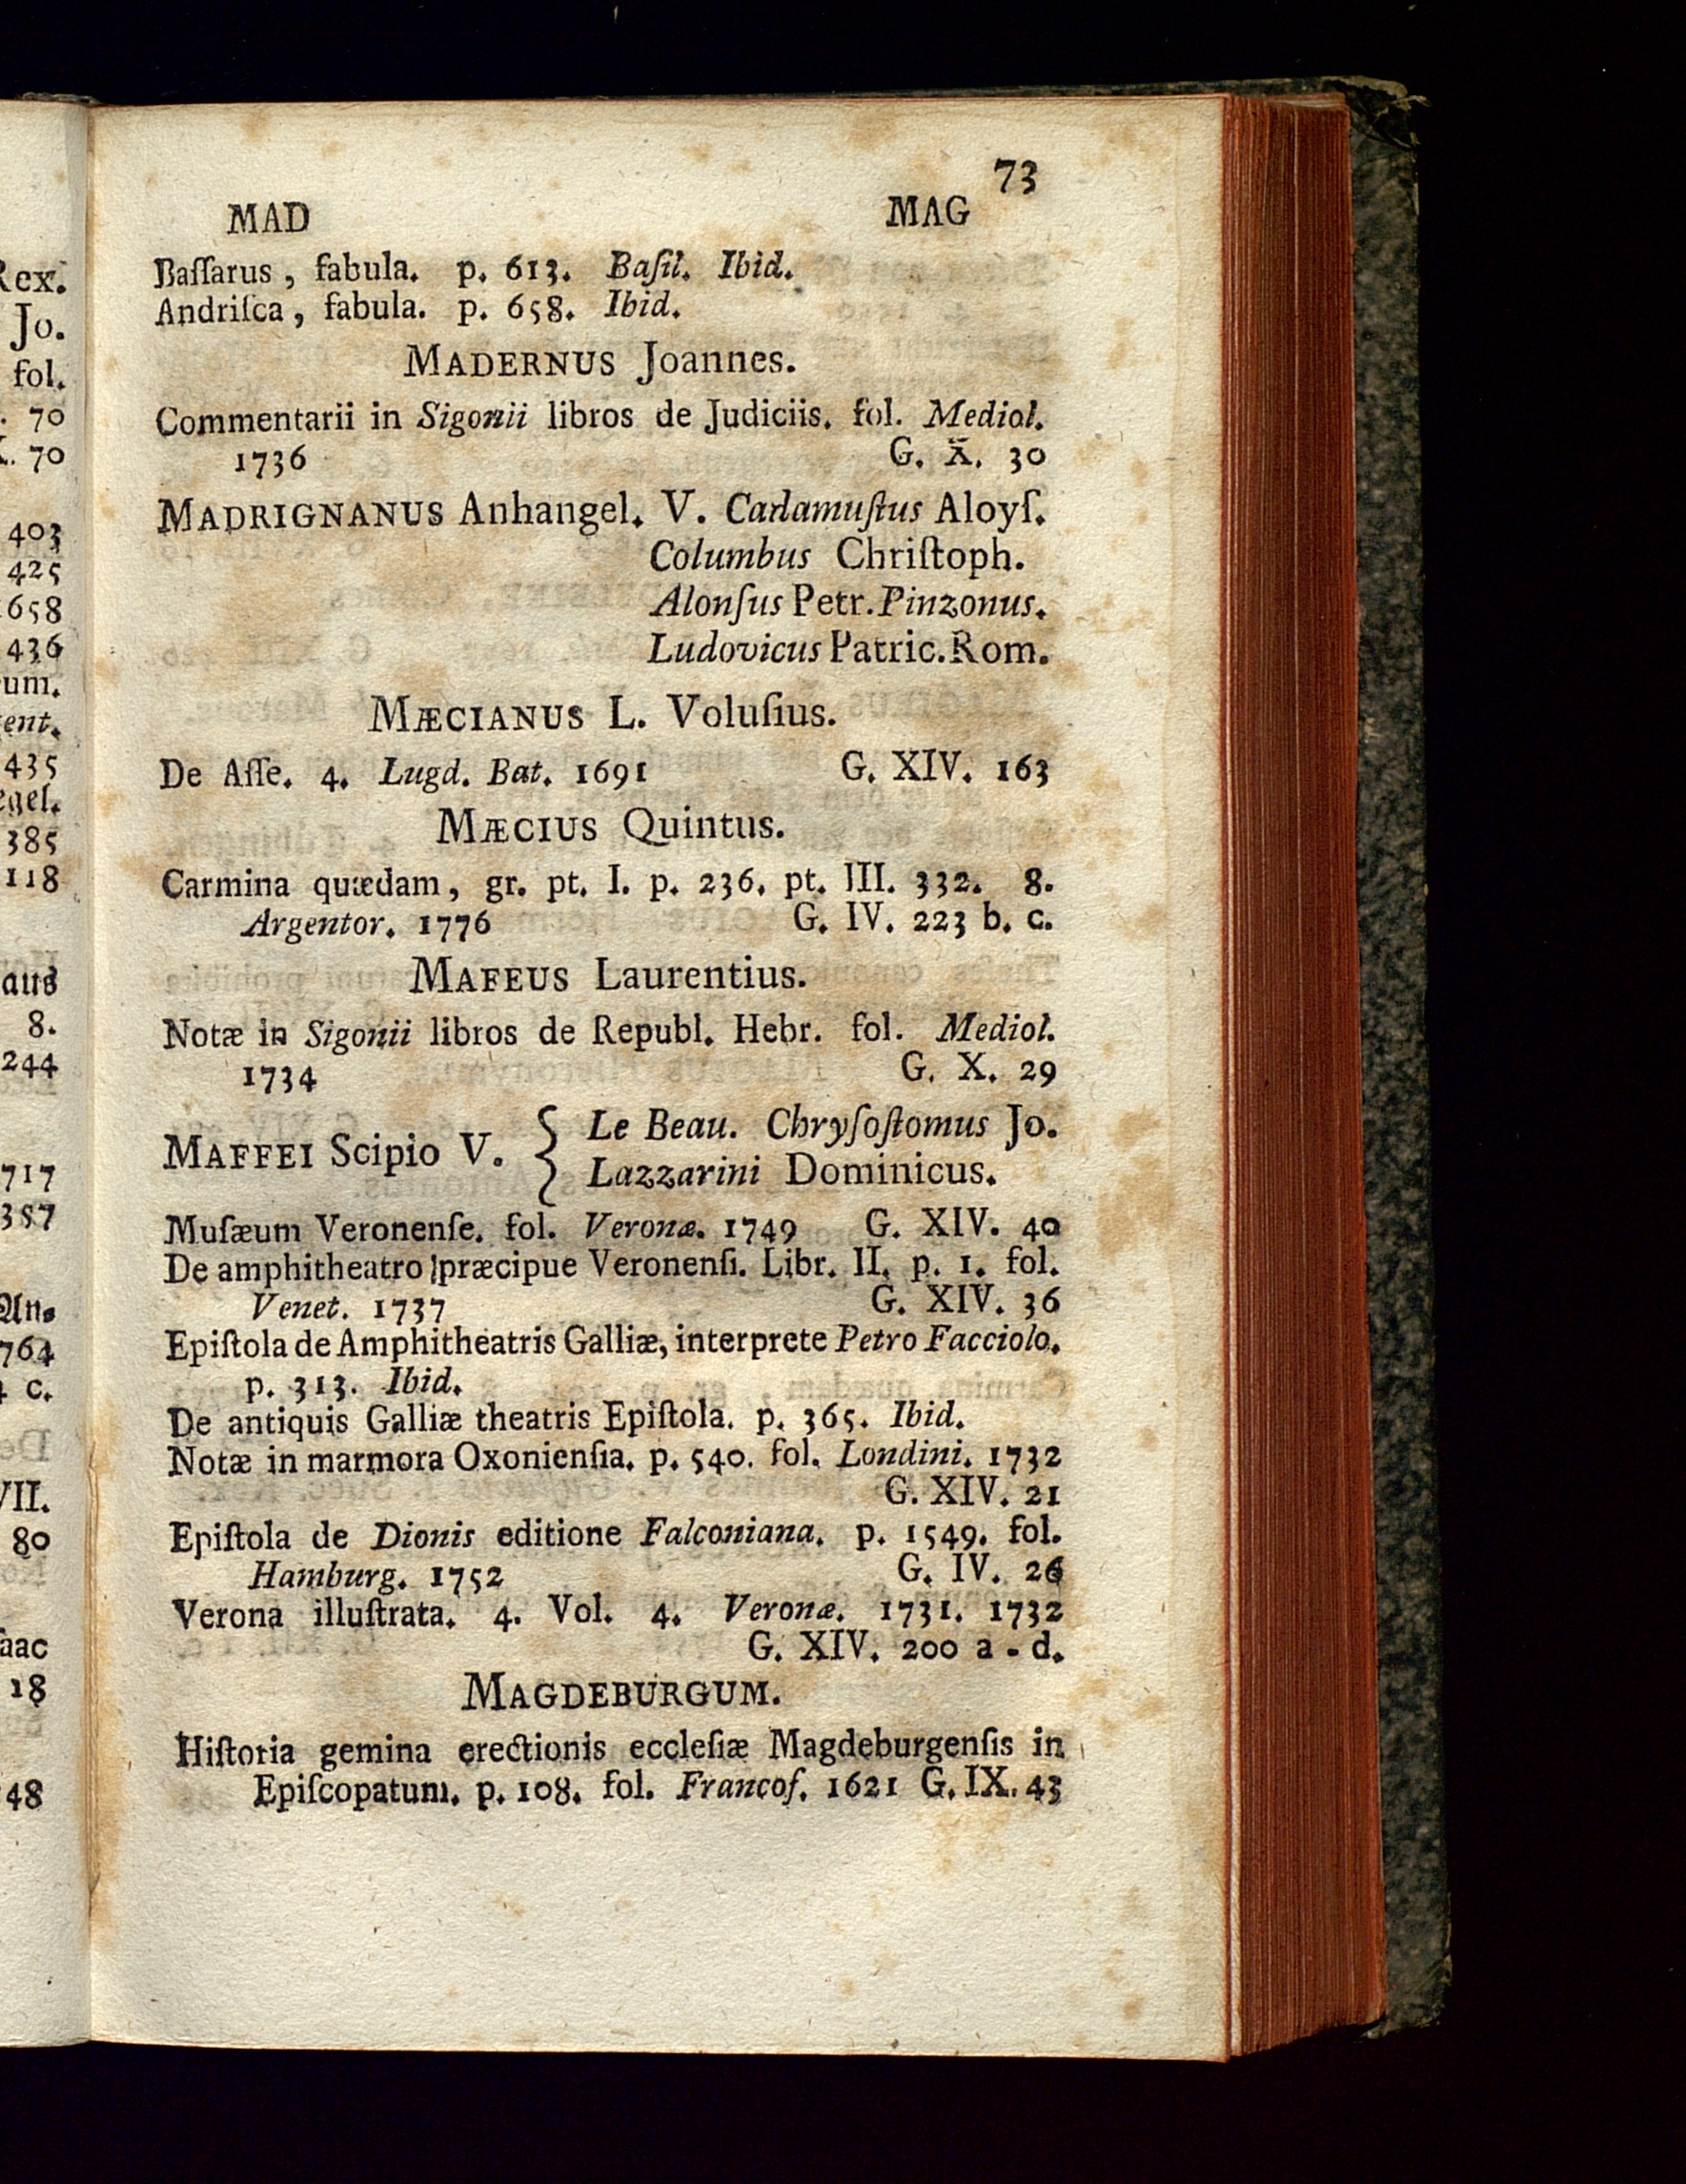 73
MAD MAG
Baſſarus, fabula. p. 613. Baſil. Ibid.
Andriſca, fabula. p. 658. Ibid.
MADERNUS Joannes.
Commentarii in Sigonii libros de Judiciis. fol. Mediol.
1736 G. X. 30
MADRIGNANUS Anhangel. V. Cadamuſtus Aloyſ.
Columbus Chriſtoph.
Alonſus Petr. Pinzonus.
Ludovicus Patric. Rom.
MÆCIANUS L. Voluſius.
De Aſſe. 4. Lugd. Bat. 1691 G. XIV. 163
MÆCIUS Quintus.
Carmina quædam, gr. pt. I. p. 236. pt. III. 332. 8.
Argentor. 1776 G. IV. 223 b. c.
MAFEUS Laurentius.
Notæ in Sigonii libros de Republ. Hebr. fol. Mediol.
1734 G. X. 29
MAFFEI Scipio V. { Le Beau. Chryſoſtomus Jo.
Lazzarini Dominicus.
Muſæum Veronenſe. fol. Veronæ. 1749 G. XIV. 40
De amphitheatro præcipue Veronenſi. Libr. II. p. 1. fol.
Venet. 1737 G. XIV. 36
Epiſtola de Amphitheatris Galliæ, interprete Petro Facciolo.
p. 313. Ibid.
De antiquis Galliæ theatris Epiſtola. p. 365. Ibid.
Notæ in marmora Oxonienſia. p. 540. fol. Londini. 1732
G. XIV. 21
Epiſtola de Dionis editione Falconiana. p. 1549. fol.
Hamburg. 1752 G. IV. 26
Verona illuſtrata. 4. Vol. 4. Veronæ. 1731. 1732
G. XIV. 200 a - d.
MAGDEBURGUM.
Hiſtoria gemina erectionis eccleſiæ Magdeburgenſis in
Epiſcopatum. p. 108. fol. Francof. 1621 G. IX. 43
Jo.
fol.
70
70
403
425
1658
436
435
385
118
8.
244
717
357
764
c.
VII.
80
18
48